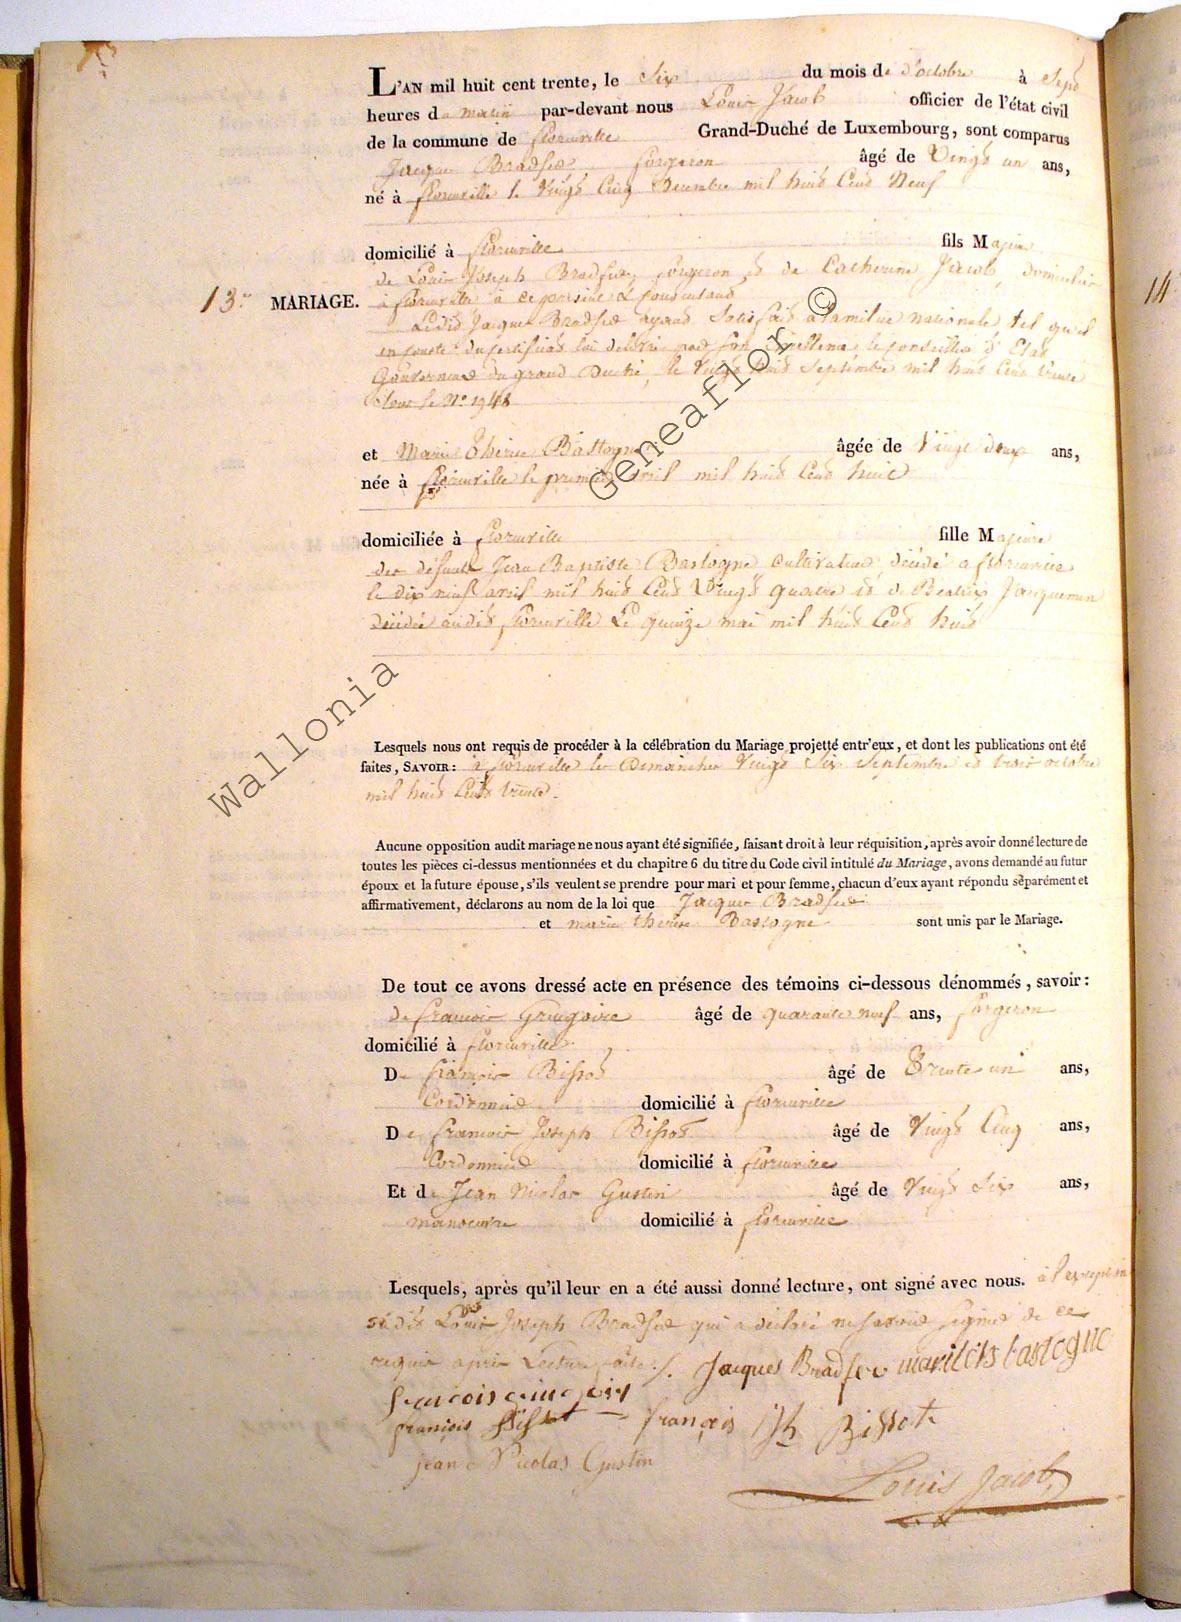 L'AN mil huit cent trente, le Six du mois de d'octobre à Sept
heures du matin par-devant nous Louis Jacob officier de l'état civil
de la commune de florenville Grand-Duché de Luxembourg, sont comparus
Jacques Bradfer forgeron âgé de Vingt un ans,
né à florenville le Vingt Cinq Decembre mil huit Cent Neuf
domicilié à florenville fils Majeur
de Louis Joseph Bradfer, forgeron et de Catherine Jacob, domiciliés
à florenville à ce présent & consentant
13e MARIAGE.
Ledit Jacques Bradfer ayant Satisfait à la milice nationale tel qu'il
en conste du certificat lui delivré par son Excellence le conseiller d'Etat
Gouverneur du grand Duché, le Vingt huit Septembre mil huit Cent trente
sous le No 1948
et Marie Therese Bastogne âgée de Vingt deux ans,
née à florenville le premier avril mil huit Cent huit
domiciliée à florenville fille Majeure
des défunts Jean Baptiste Bastogne cultivateur décédé a florenville
le dix neuf avril mil huit Cent Vingt quatre et de Beatrix Jacquemin
décédée audit florenville Le quinze mai mil huit Cent huit
Lesquels nous ont requis de procéder à la célébration du Mariage projetté entr'eux, et dont les publications ont été
faites, SAVOIR: à florenville les Dimanches Vingt Six Septembre et trois octobre
mil huit Cent trente.
Aucune opposition audit mariage ne nous ayant été signifiée, faisant droit à leur réquisition, après avoir donné lecture de
toutes les pièces ci-dessus mentionnées et du chapitre 6 du titre du Code civil intitulé du Mariage, avons demandé au futur
époux et la future épouse, s'ils veulent se prendre pour mari et pour femme, chacun d'eux ayant répondu séparément et
affirmativement, déclarons au nom de la loi que Jacques Bradfer
et marie therese Bastogne sont unis par le Mariage.
De tout ce avons dressé acte en présence des témoins ci-dessous dénommés, savoir:
de francois Gringoire âgé de quarante neuf ans, forgeron
domicilié à florenville
De françois Bissot âgé de Trente un ans,
Cordonnier domicilié à florenville
De francois Joseph Bissot âgé de Vingt Cinq ans,
Cordonnier domicilié à florenville
Et de Jean Nicolas Gustin âgé de Vingt Six ans,
manoeuvre domicilié à florenville
Lesquels, après qu'il leur en a été aussi donné lecture, ont signé avec nous. à l'exception
dudit Louis Joseph Bradfer qui a déclaré ne savoir signer de ce
requis après Lecture faite /. Jacques Bradfer
françois Bissot françois jsph Bissot
jean Nicolas Gustin
Louis Jacob
14
Wallonia Geneaflor ©